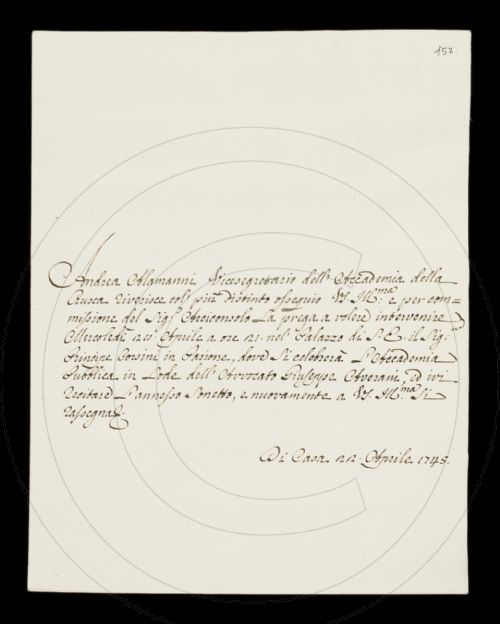 152
Andrea Alamanni Vicesegretario dell' Accademia della
Crusca riverisce col' più distinto ossequio V.S. Ill.ma: e per com=
missione del Sig.r Arciconsolo La prega a volere intervenire
Mercoledì Aprile a ore 21. nel' Palazzo di S. E. il Sig.
Principe Corsini in Parione, dove si celebrerà L'Accademia
Pubblica in Lode dell' Avvocato Giuseppe Averani, ed ivi
recitare L'annesso Sonetto, e nuovamente a V.S. Ill.ma Si
rassegna.
Di Casa 22. Aprile 1745.